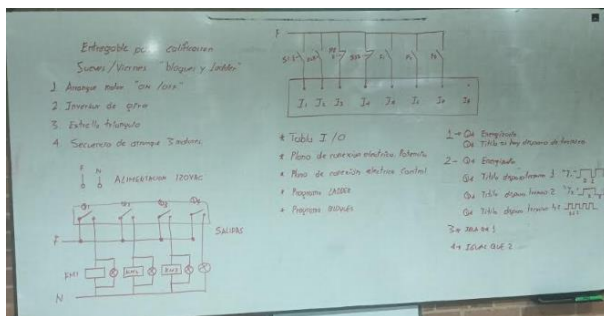 Entregable para calificacion
Jueves/Viernes "bloques y ladder"
1 Arranque motor "ON/OFF"
2 Inversor de giro
3. Estrella triangulo
4. Secuencia de arranque 3 motores
F N
ALIMENTACION 120VAC
Q1 Q2 Q3 Q4
SALIDAS
F
KM1 KM2 KM3
N
F
I1 I2 I3 I4 I5 I6 I7 I8
* Tabla I/O
* Plano de conexion electrica Potencia
* Plano de conexion electrica Control
* Programa LADDER
* Programa BLOQUES
1 → Q4 Energizado
Q4 Titila si hay disparo de termico
2 - Q4 Energizado
Q4 Titila disparo termico 1
Q4 Titila disparo termico 2
Q4 Titila disparo termico
3 →
4 → IGUAL QUE 2